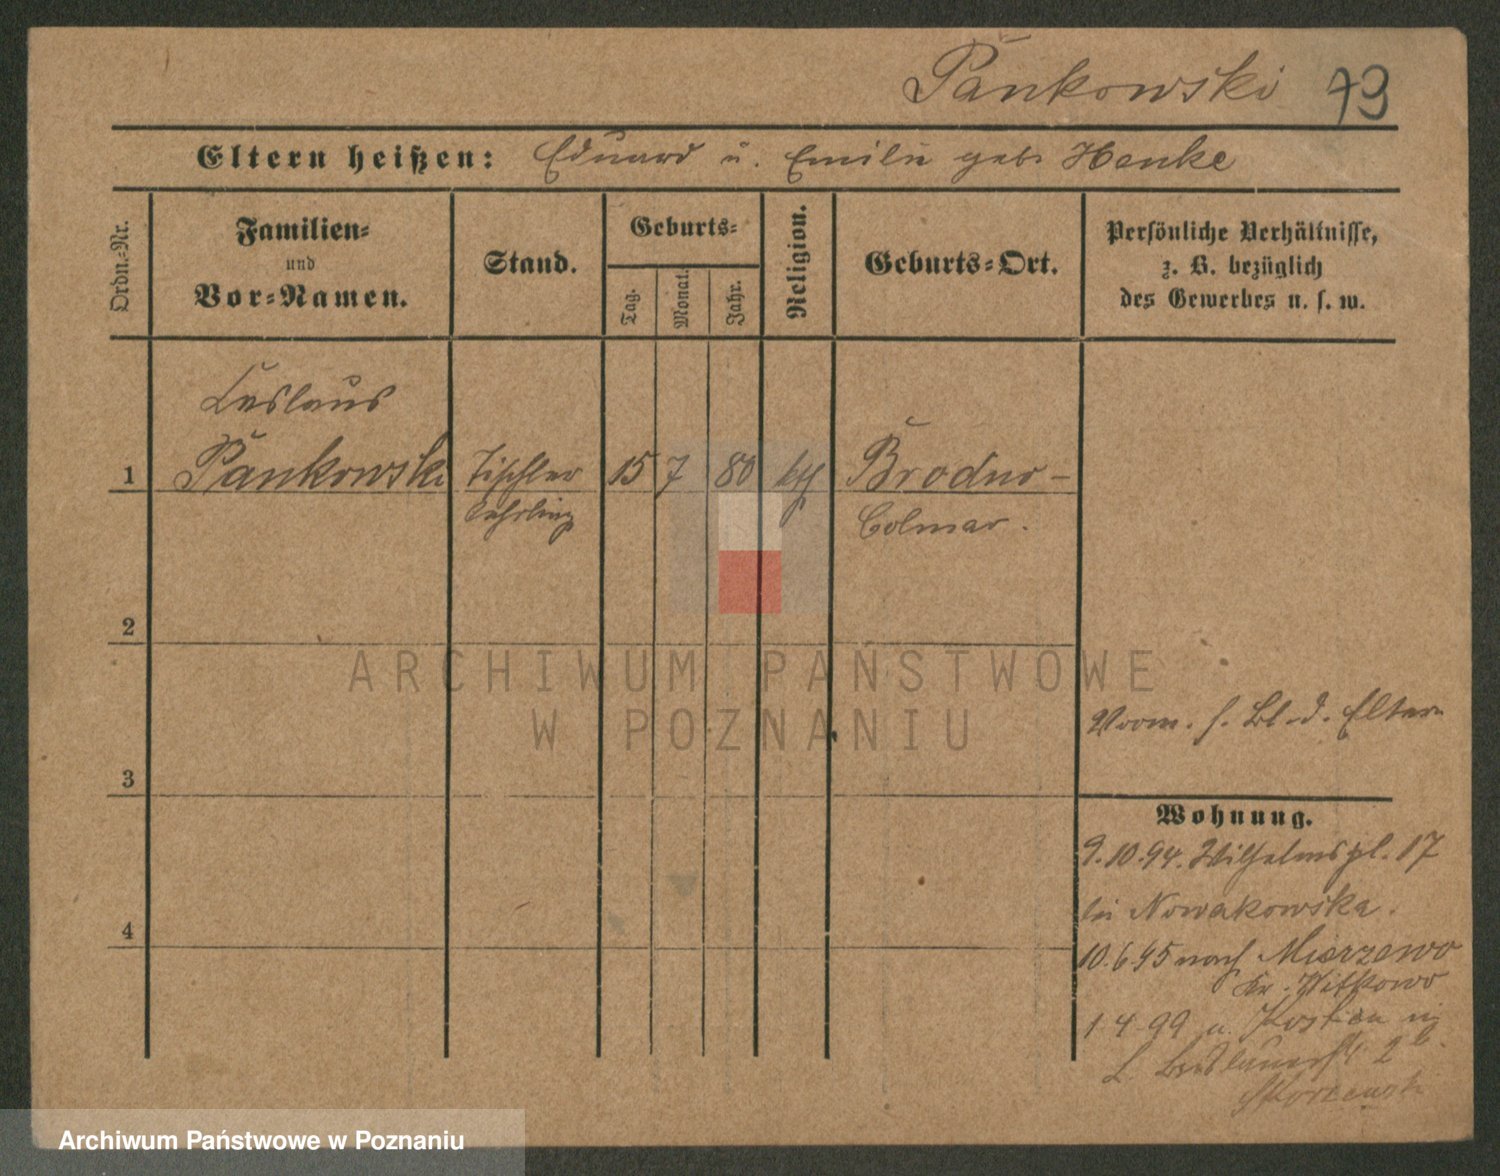 Pankowski 73
Eltern heißen: Eduard u. Emilie geb. Henke
Ordn.-Nr.
Familien-
und
Vor-Namen.
Stand.
Geburts-
Tag.
Monat.
Jahr.
Religion.
Geburts-Ort.
Persönliche Verhältnisse,
z. B. bezüglich
des Gewerbes u. s. w.
Ceslaus
1 Pankowski Tischler 15 7 80 kth Brodno-
Lehrling Colmar.
2
3
4
Vorm. s. Bl. d. Eltern
Wohnung.
9.10.94. Wilhelmspl. 17
bei Nowakowska.
10.6.95 nach Mierzewo
Kr. Witkowo
1 4 99 u. Kosten in
2
ARCHIWUM PAŃSTWOWE
W POZNANIU
Archiwum Państwowe w Poznaniu